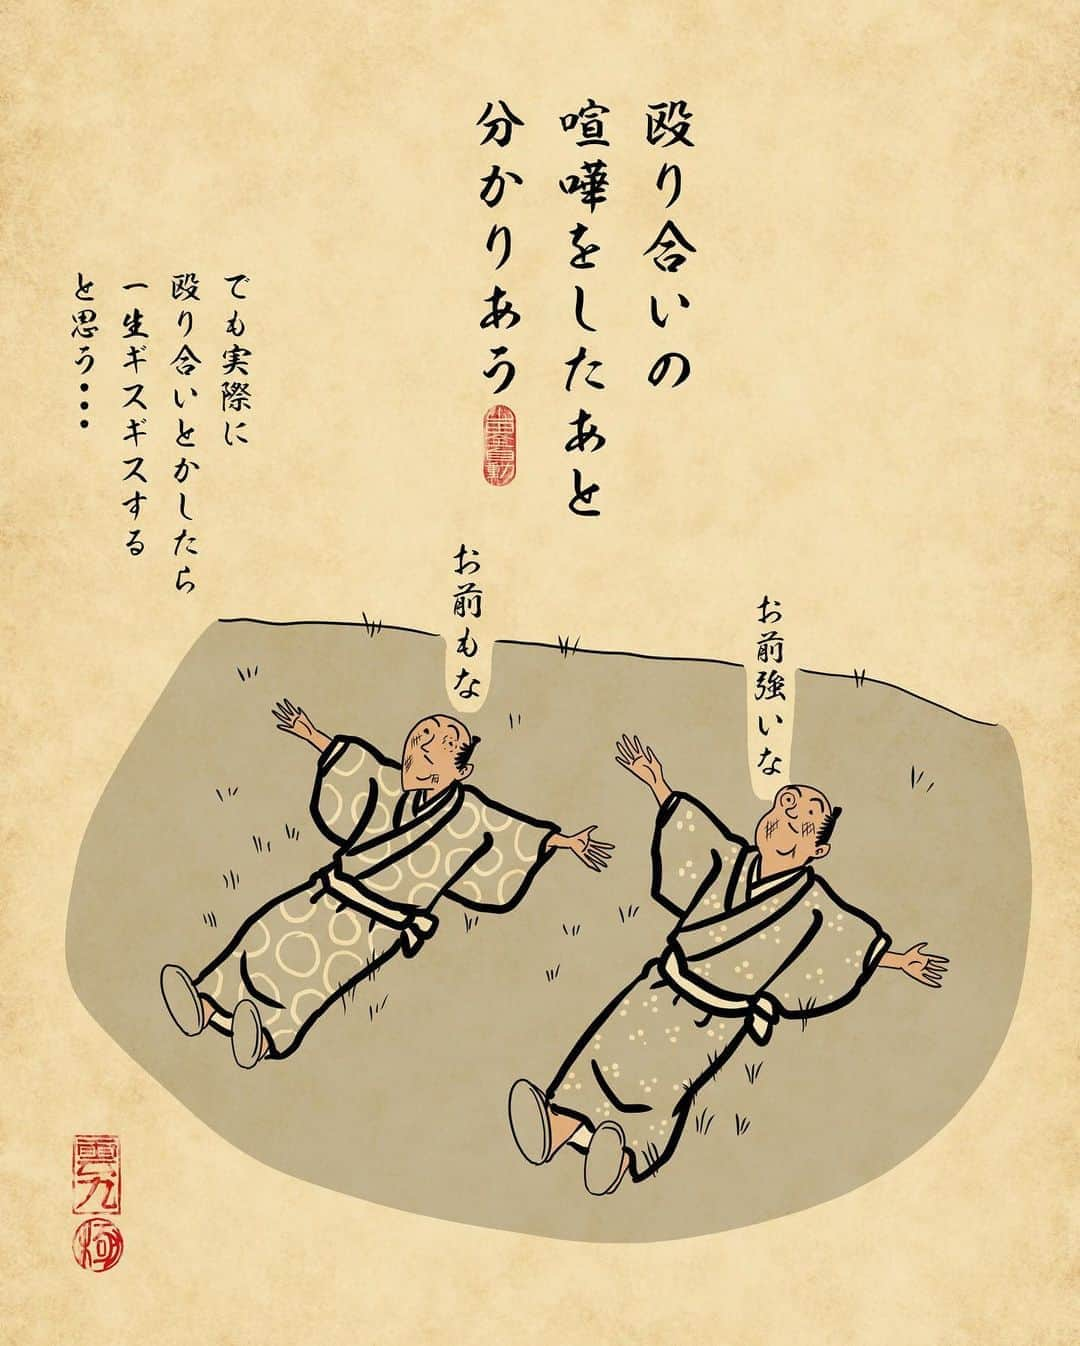 殴り合いの
喧嘩をしたあと
分かりあう
でも実際に
殴り合いとかしたら
一生ギスギスする
と思う・・・
お前強いな
お前もな